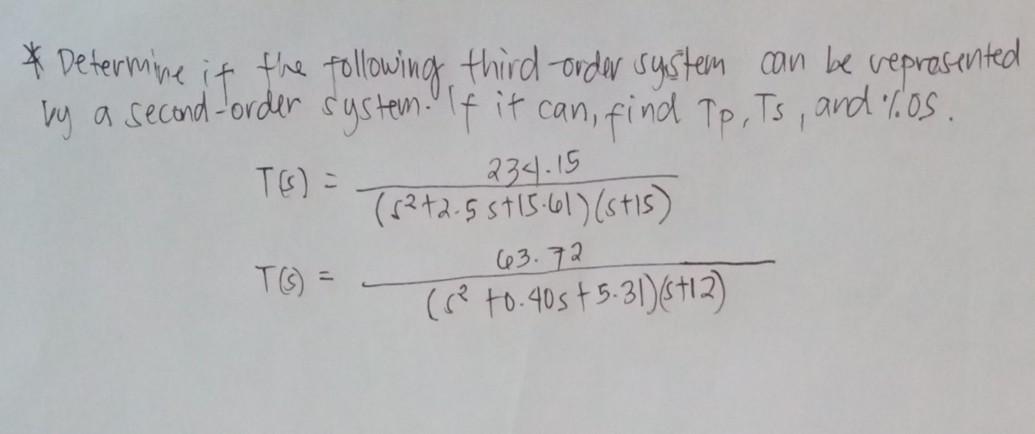 * Determine if the following third-order system can be represented
by a second-order system. If it can, find Tp, Ts, and %OS.
T(s) = 234.15 / (s²+2.5s+15.61)(s+15)
T(s) = 63.72 / (s² +0.40s+5.31)(s+12)